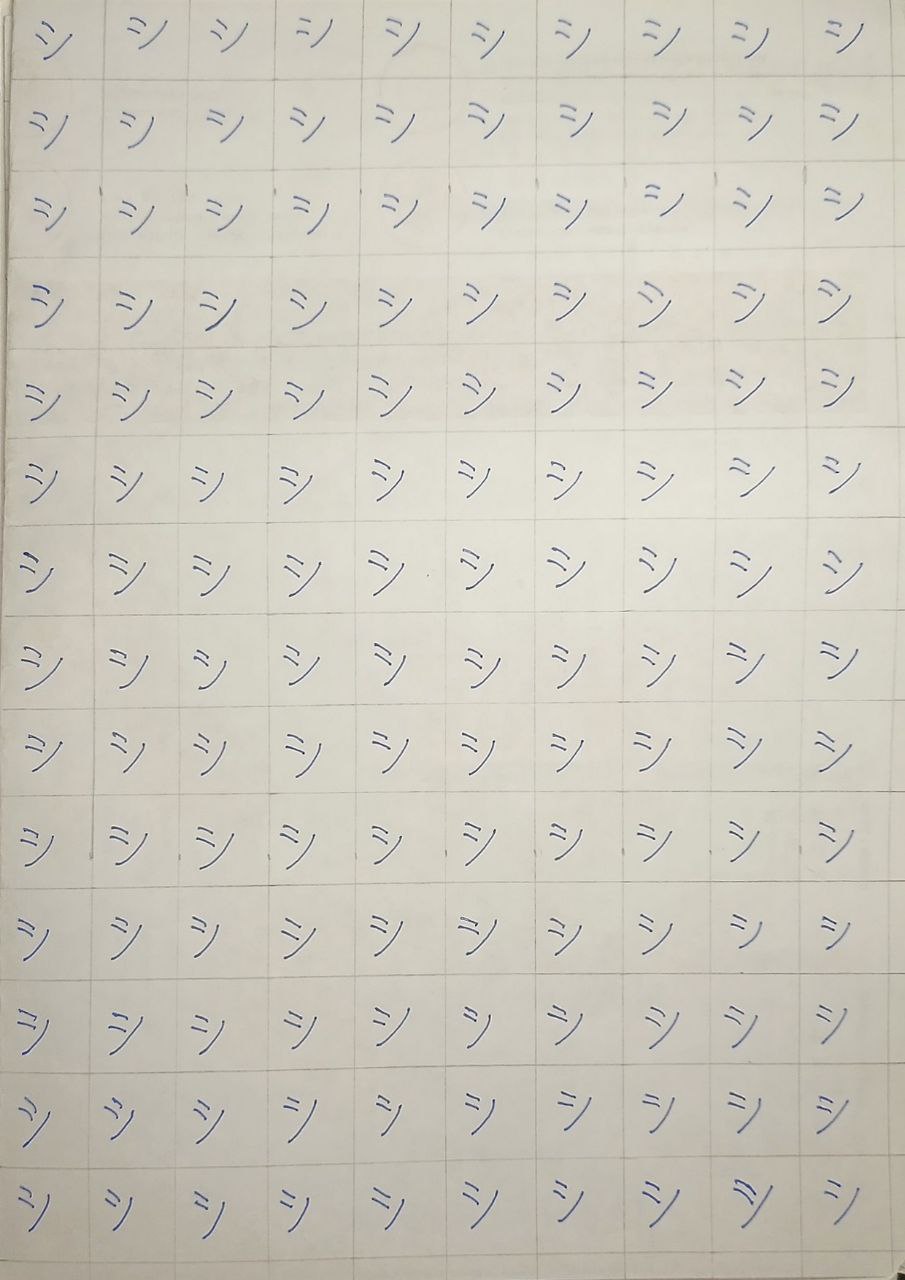 シ シ シ シ シ シ シ シ シ シ
シ シ シ シ シ シ シ シ シ シ
シ シ シ シ シ シ シ シ シ シ
シ シ シ シ シ シ シ シ シ シ
シ シ シ シ シ シ シ シ シ シ
シ シ シ シ シ シ シ シ シ シ
シ シ シ シ シ シ シ シ シ シ
シ シ シ シ シ シ シ シ シ シ
シ シ シ シ シ シ シ シ シ シ
シ シ シ シ シ シ シ シ シ シ
シ シ シ シ シ シ シ シ シ シ
シ シ シ シ シ シ シ シ シ シ
シ シ シ シ シ シ シ シ シ シ
シ シ シ シ シ シ シ シ シ シ